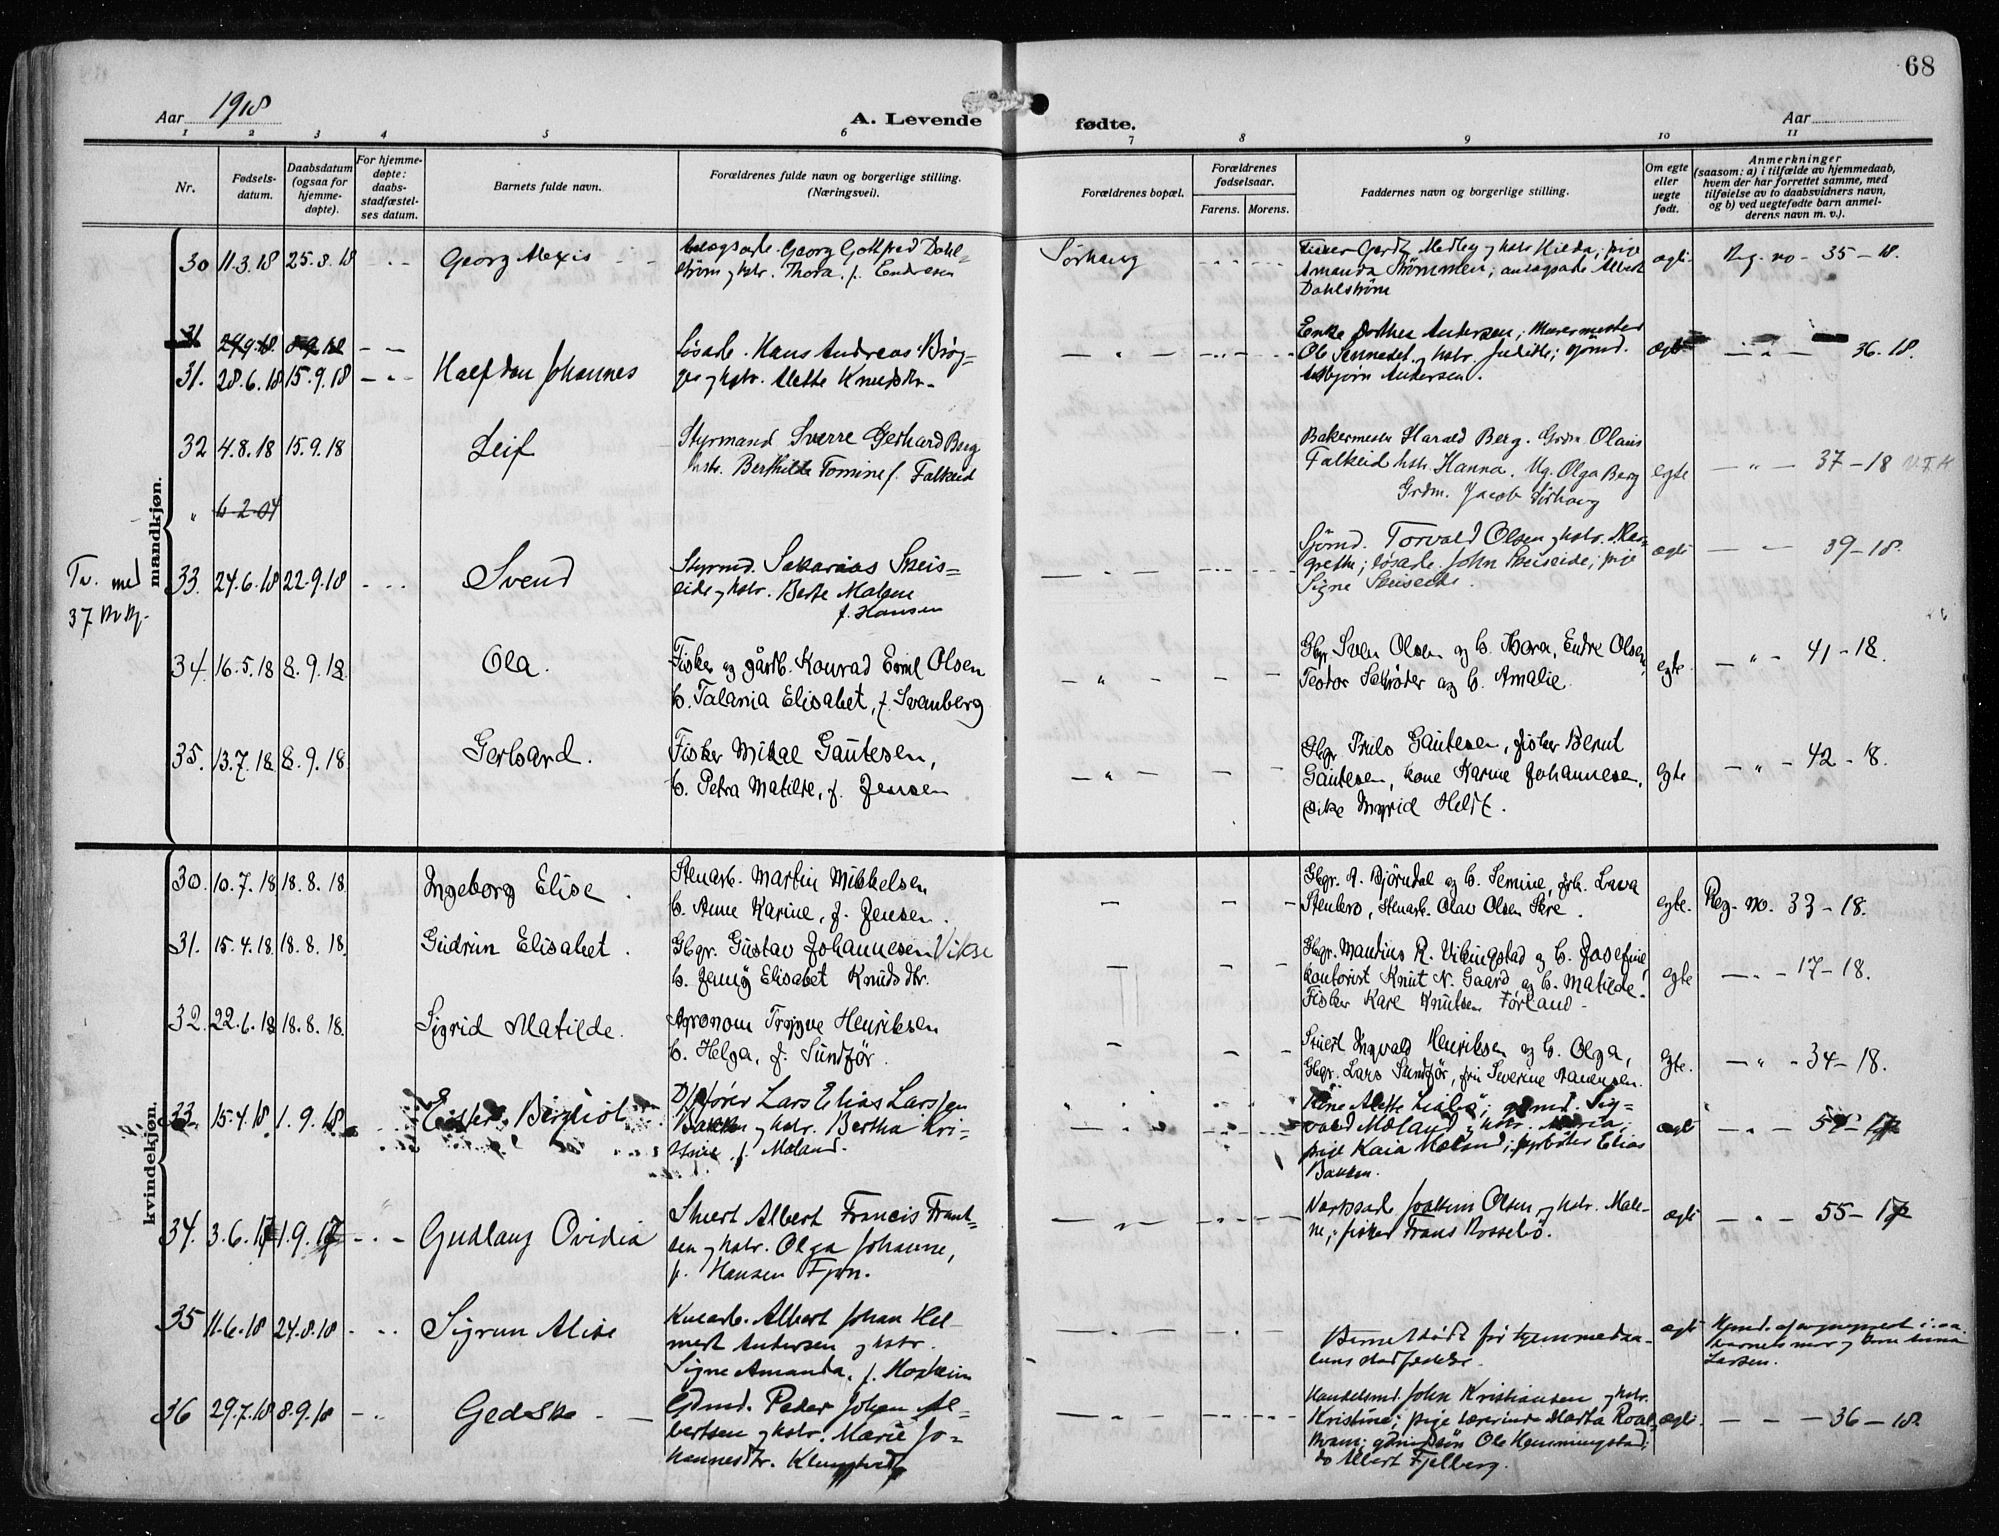 68
Aar 1918
A. Levende fødte.
Aar
1 2 3 4 5 6 7 8 9 10 11
Nr.
Fødsels-
datum.
Daabsdatum
(ogsaa for
hjemme-
døpte).
For hjemme-
døpte:
daabs-
stadfæstel-
ses datum.
Barnets fulde navn.
Forældrenes fulde navn og borgerlige stilling.
(Næringsvei).
Forældrenes bopæl.
Forældrenes
fødselsaar.
Farens. Morens.
Faddernes navn og borgerlige stilling.
Om egte
eller
uegte
født.
Anmerkninger
(saasom: a) i tilfælde av hjemmedaab,
hvem der har forrettet samme, med
tilføielse av to daabsvidners navn,
og b) ved uegtefødte barn anmel-
derens navn m. v.).
mandkjøn.
30 11.3.18 25.8.18
Georg Alexis
Georg Gottfred Dahl-
strøm og hstr. Thora f. Endresen
Sørhaug
Fisker Medley og hstr Hilda; pige
Amanda Strømmen; anlagsarb Albert
Dahlstrøm
egte
Reg. no - 35 - 18.
31
31. 28.6.18 15.9.18
Halfdan Johannes
Løsarb. Hans Andreas Brøg-
ger og hstr. Alette Knudsdtr.
Enke Dorthea Andersen; Murermester
Ole og hstr. Judithe; sjømd.
Asbjørn Andersen.
egte
- " - 36.18.
32 4.8.18 15.9.18
Leif
Styrmand Sverre Gerhard Berg
hstr. Berthilde Tomine f. Falkeid
Bakermester Harald Berg. Grdm. Olaus
Falkeid hstr. Hanna. Ug. Olga Berg
Grdm. Jacob Sørhaug
egte
- " - 37 - 18
" 6-2-04
Tv. med
37
33. 24.6.18 22.9.18
Svend
Styrmd. Sakarias Skeis-
eide og hstr. Berte Malene
f. Hansen
Sjömd. Torvald Olsen og hstr. Mar-
grethe; løsarb. John Skeiseide; pige
Signe Skeiseide.
egte
39-18.
34. 16.5.18 8.9.18
Ola.
Fisker og gårdb. Konrad Emil Olsen
h. Talania Elisabet, f. Svanberg
Gbgr. Sven Olsen og h. Thora, Endre Olsen,
Teodor Schrøder og h. Amalie.
egte.
- " - 41-18.
35. 13.7.18 8.9.18
Gerhard.
Fisker Mikal Gautesen,
h. Petra Matilde, f. Jensen
Gbgr Gautesen, fisker Bernt
Gautesen, kone Karine Johannesen,
pike Ingrid Heldt.
egte
- " - 42-18.
kvindekjøn.
30. 10.7.18 18.8.18.
Ingeborg Elise.
Stenarb. Martin Mikkelsen
h. Anne Karine, f. Jensen.
Gbgr. A. Bjørndal og h. Semine, frk. Lava
Stenbro, stenarb. Olav Olsen Skre.
egte.
Reg. no. 33-18.
31. 15.4.18 18.8.18.
Gudrun Elisabet.
Gbgr. Gustav Johannesen Vikse
h. Jenny Elisabet Knudsdtr.
Gbgr. Mandius R. Vikingstad og h. Josefine,
kontorist Knut N. Gaard og h. Matilde.
Fisker Kare Knutsen Førland.
egte
17-18.
32. 22.6.18 18.8.18.
Sigrid Matilde.
Agronom Trygve Henriksen
h. Helga, f. Sundför.
Stuert Ingvald Henriksen og h. Olga,
Gbgr. Lars Sundför, fru Severine Andersen.
egte.
- " - 34-18.
33. 15.4.18 1.9.18
Ester Bergliot
D/pfører Lars Elias Larssen
Bakken og hstr. Bertha Kri-
stine f. Mæland.
Alette; gdmd. Sig-
vald Mæland og hstr. Maria;
pige Kaia Mæland; Elias
Bakken.
egte
34. 3.6.18 1.9.18
Gudlaug Ovidia
Stuert Albert Francis Frant-
sen og hstr. Olga Johanne,
f. Hansen Fjon.
Verksarb. Joakim Olsen og hstr. Male-
ne; fisker Frans Rossebö.
egte
55-18
35 11.6.18 24.8.18
Sigrun Alise
Albert Johan Hel-
mert Andersen og hstr.
Signe Amanda, f.
Barnet dödt för hjemmedaa-
bens stadfestelse.
egte
Larsen.
36 29.7.18 8.9.18
Gedske
Gdmd. Peder Johan Al-
bertsen og hstr. Marie Jo-
hannesdtr.
Handelsmd. John Kristiansen og hstr.
Kristine; pige lærerinde Marta Roald-
kvam; gdmdssön Ole Hemmingstad;
do Albert Fjelberg.
egte.
- - - 36-18.